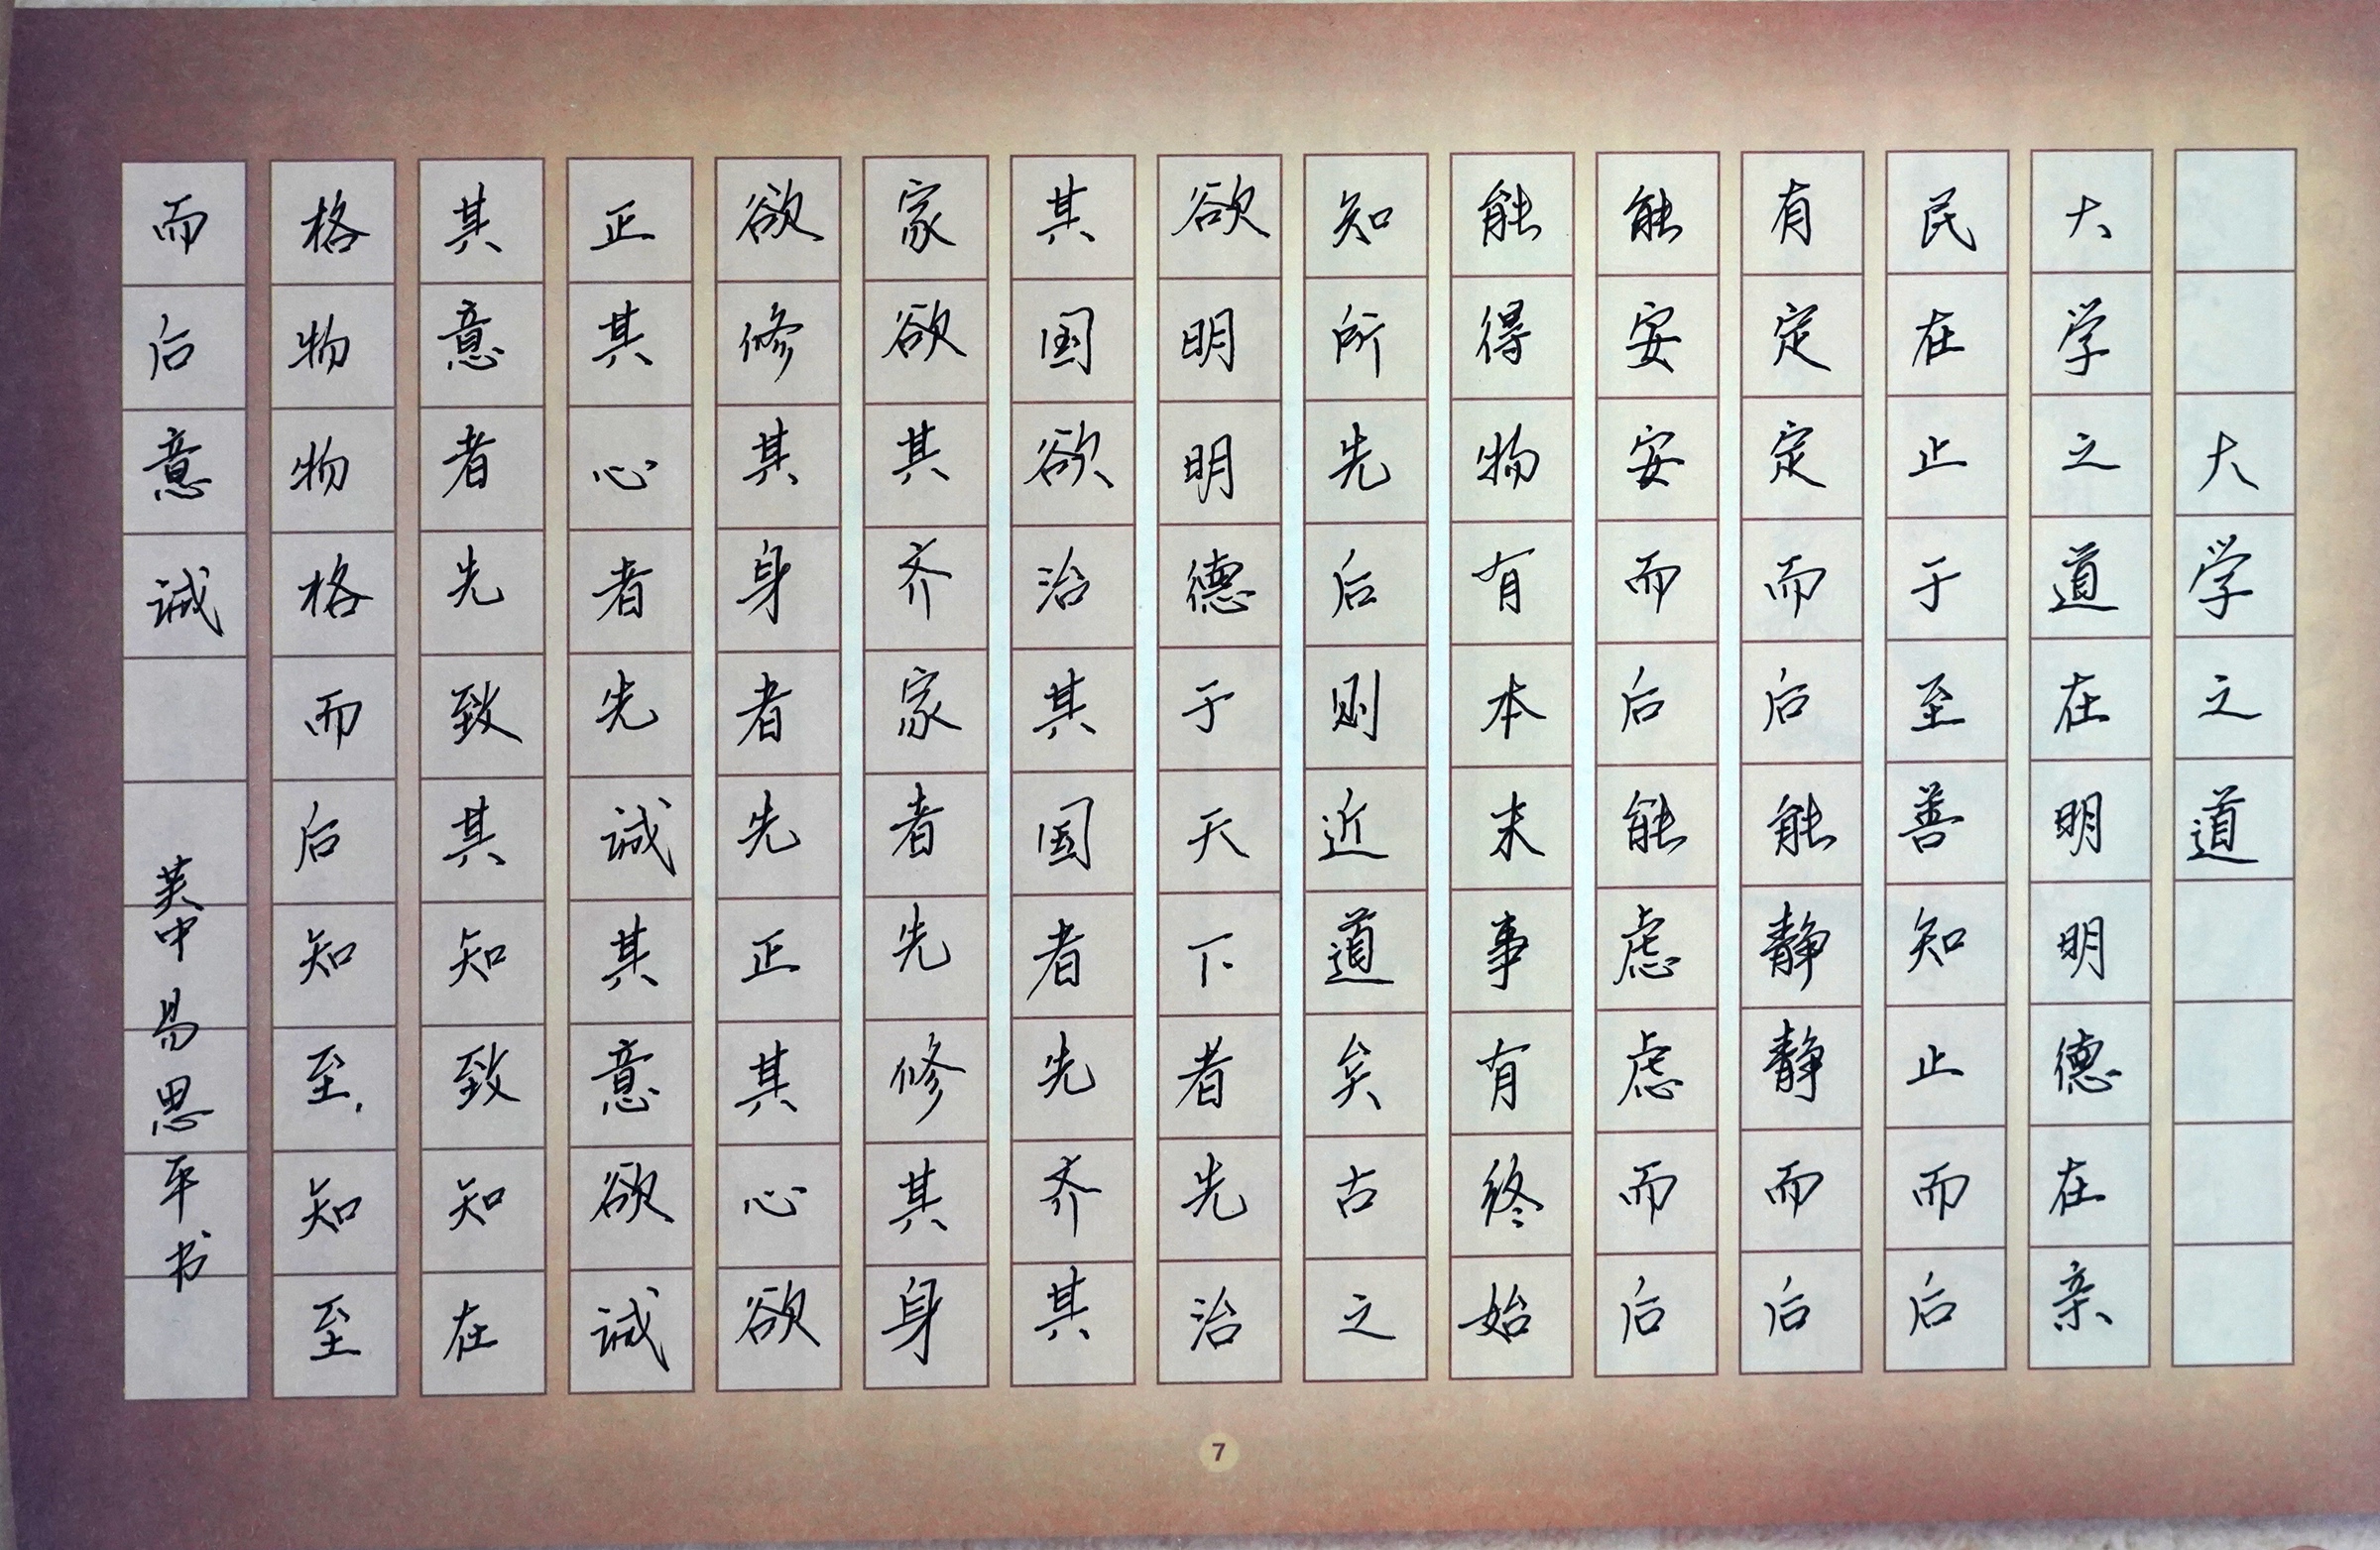 大学之道
大学之道在明明德在亲
民在止于至善知止而后
有定定而后能静静而后
能安安而后能虑虑而后
能得物有本末事有终始
知所先后则近道矣古之
欲明明德于天下者先治
其国欲治其国者先齐其
家欲其齐家者先修其身
欲修其身者先正其心欲
正其心者先诚其意欲诚
其意者先致其知致知在
格物物格而后知至知至
而后意诚
芙中易思平书
7